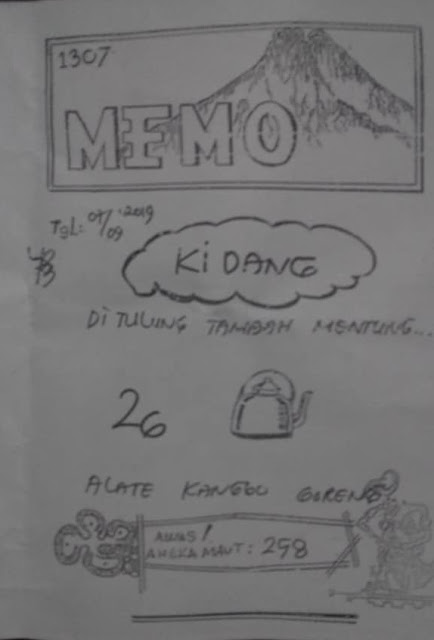 1307
MEMO
TGL: 07/09 '2019
KiDANG
Di TULUNG TAMBAH MENTUNG...
26
ALATE KANGGO GORENG2.
AWAS!
ANGKA MAUT: 298